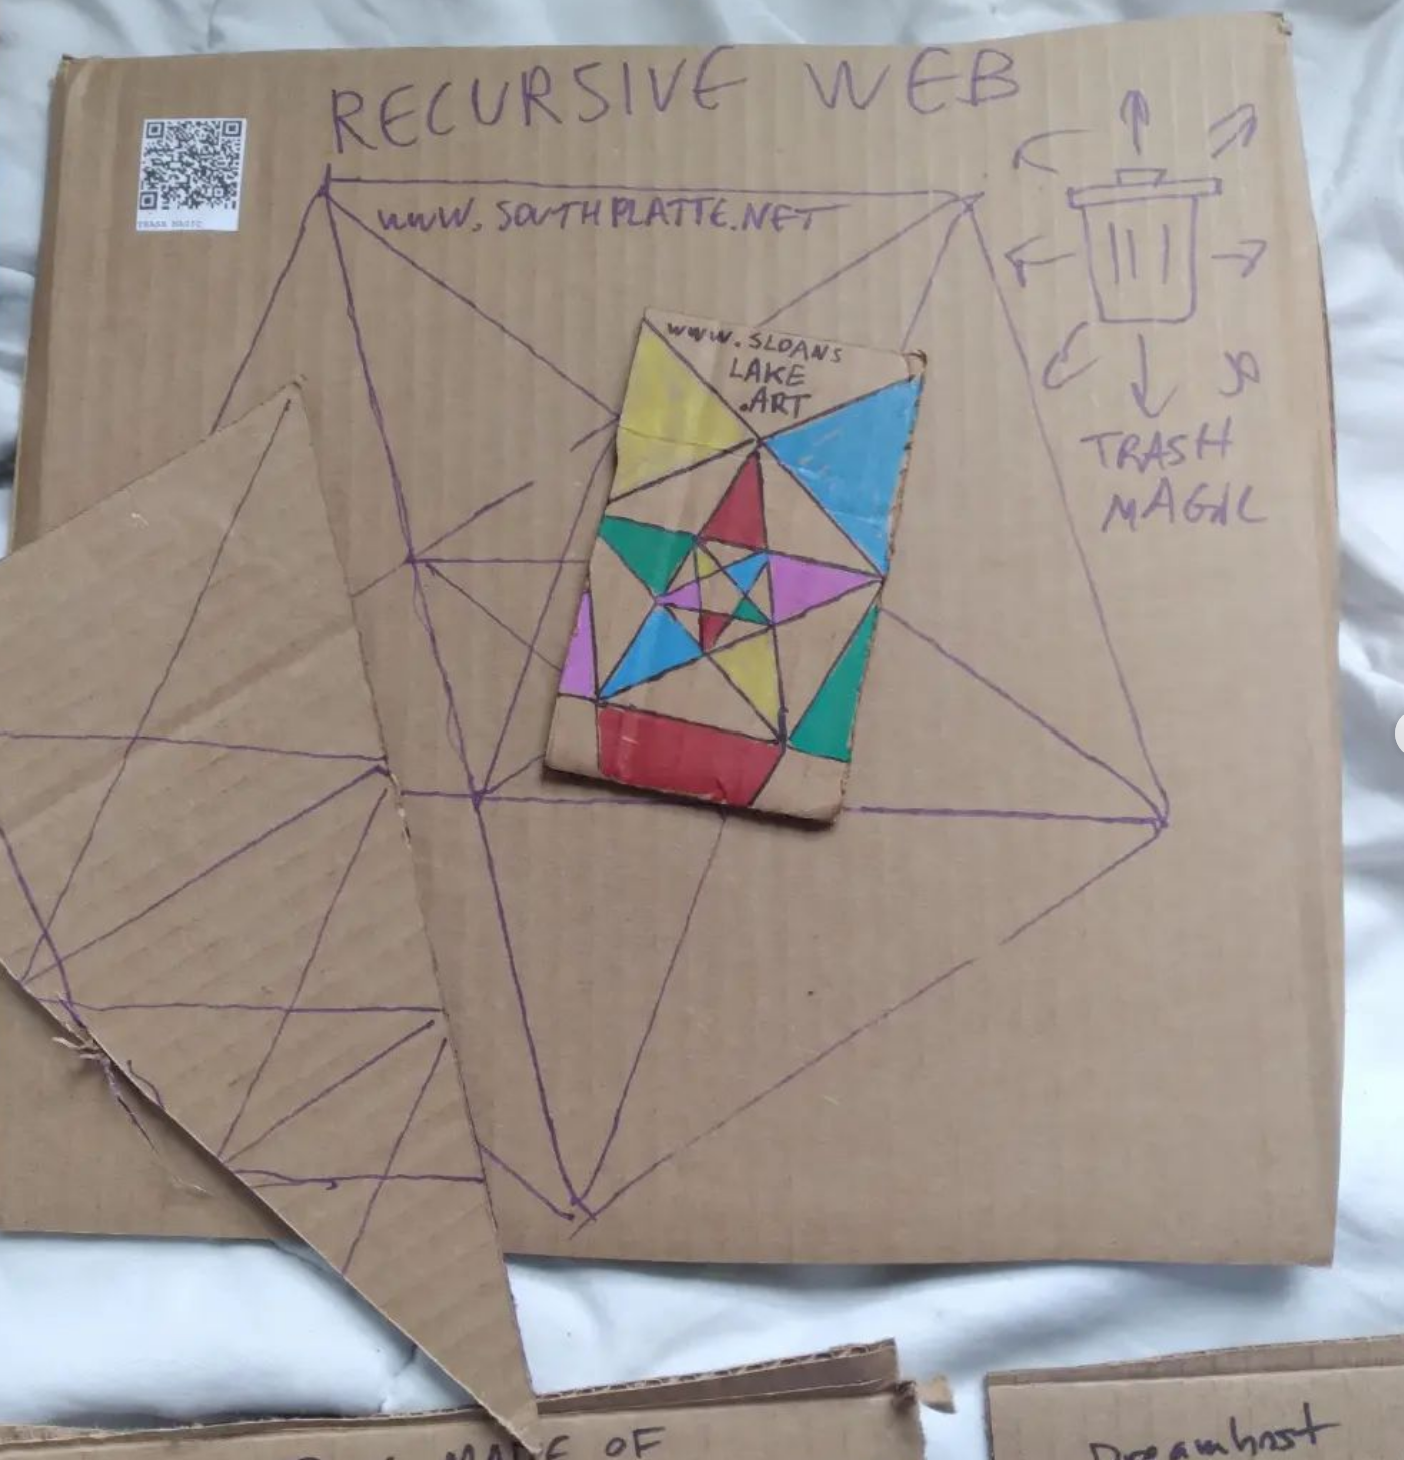 RECURSIVE WEB
TRASH MAGIC
www.SOUTHPLATTE.NET
www.SLOANS
LAKE
.ART
TRASH
MAGIC
MADE OF
Dreamhost